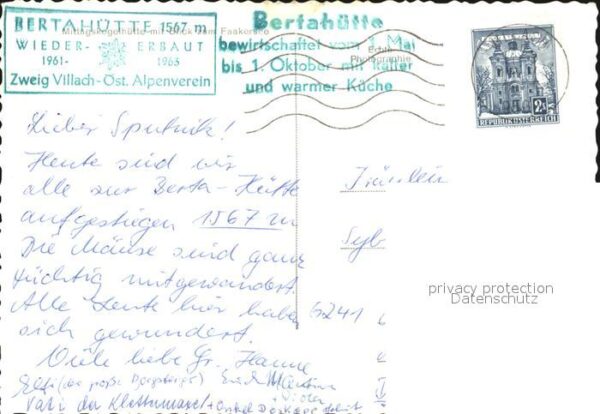 BERTAHÜTTE 1567 m
WIEDER- ERBAUT
1961- 1963
Zweig Villach-Öst. Alpenverein
Mittagskogelhütte mit Blick zum Faakersee
Echte
Photographie
Bertahütte
bewirtschaftet vom 1. Mai
bis 1. Oktober mit kalter
und warmer Küche
2S
REPUBLIK ÖSTERREICH
Lieber Sputnik!
Heute sind wir
alle zur Berta-Hütte
aufgestiegen 1567 m
Die Mäuse sind ganz
tüchtig mitgewandert.
Alle Leute hier haben
sich gewundert.
Viele liebe Gr. Hanne
Vati der
Fräulein
Syb
6241
privacy protection
Datenschutz